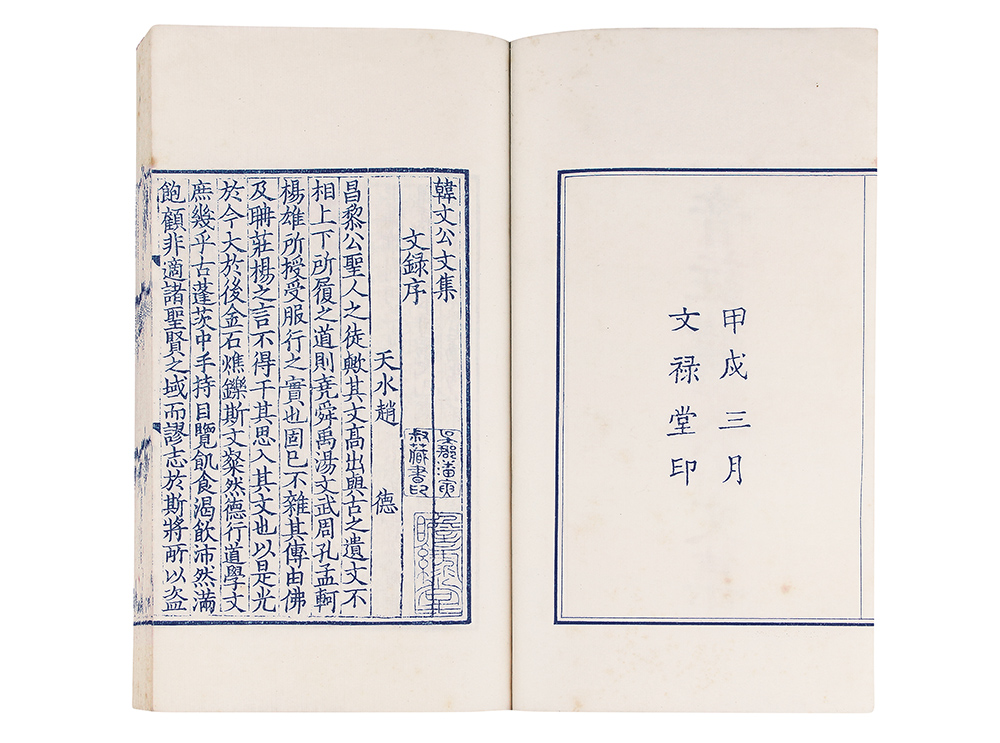 甲戌三月
文禄堂印
韓文公文集
文録序
天水趙　德
吳郡潘寅
叔藏書印
昌黎公聖人之徒歟其文高出與古之遺文不
相上下所履之道則堯舜禹湯文武周孔孟軻
楊雄所授受服行之實也固已不雜其傳由佛
及聃莊楊之言不得干其思入其文也以是光
於今大於後金石燋鑠斯文粲然德行道學文
庶幾乎古蓬茨中手持目覽飢食渴飲沛然滿
飽顧非適諸聖賢之域而謬志於斯將所以盜